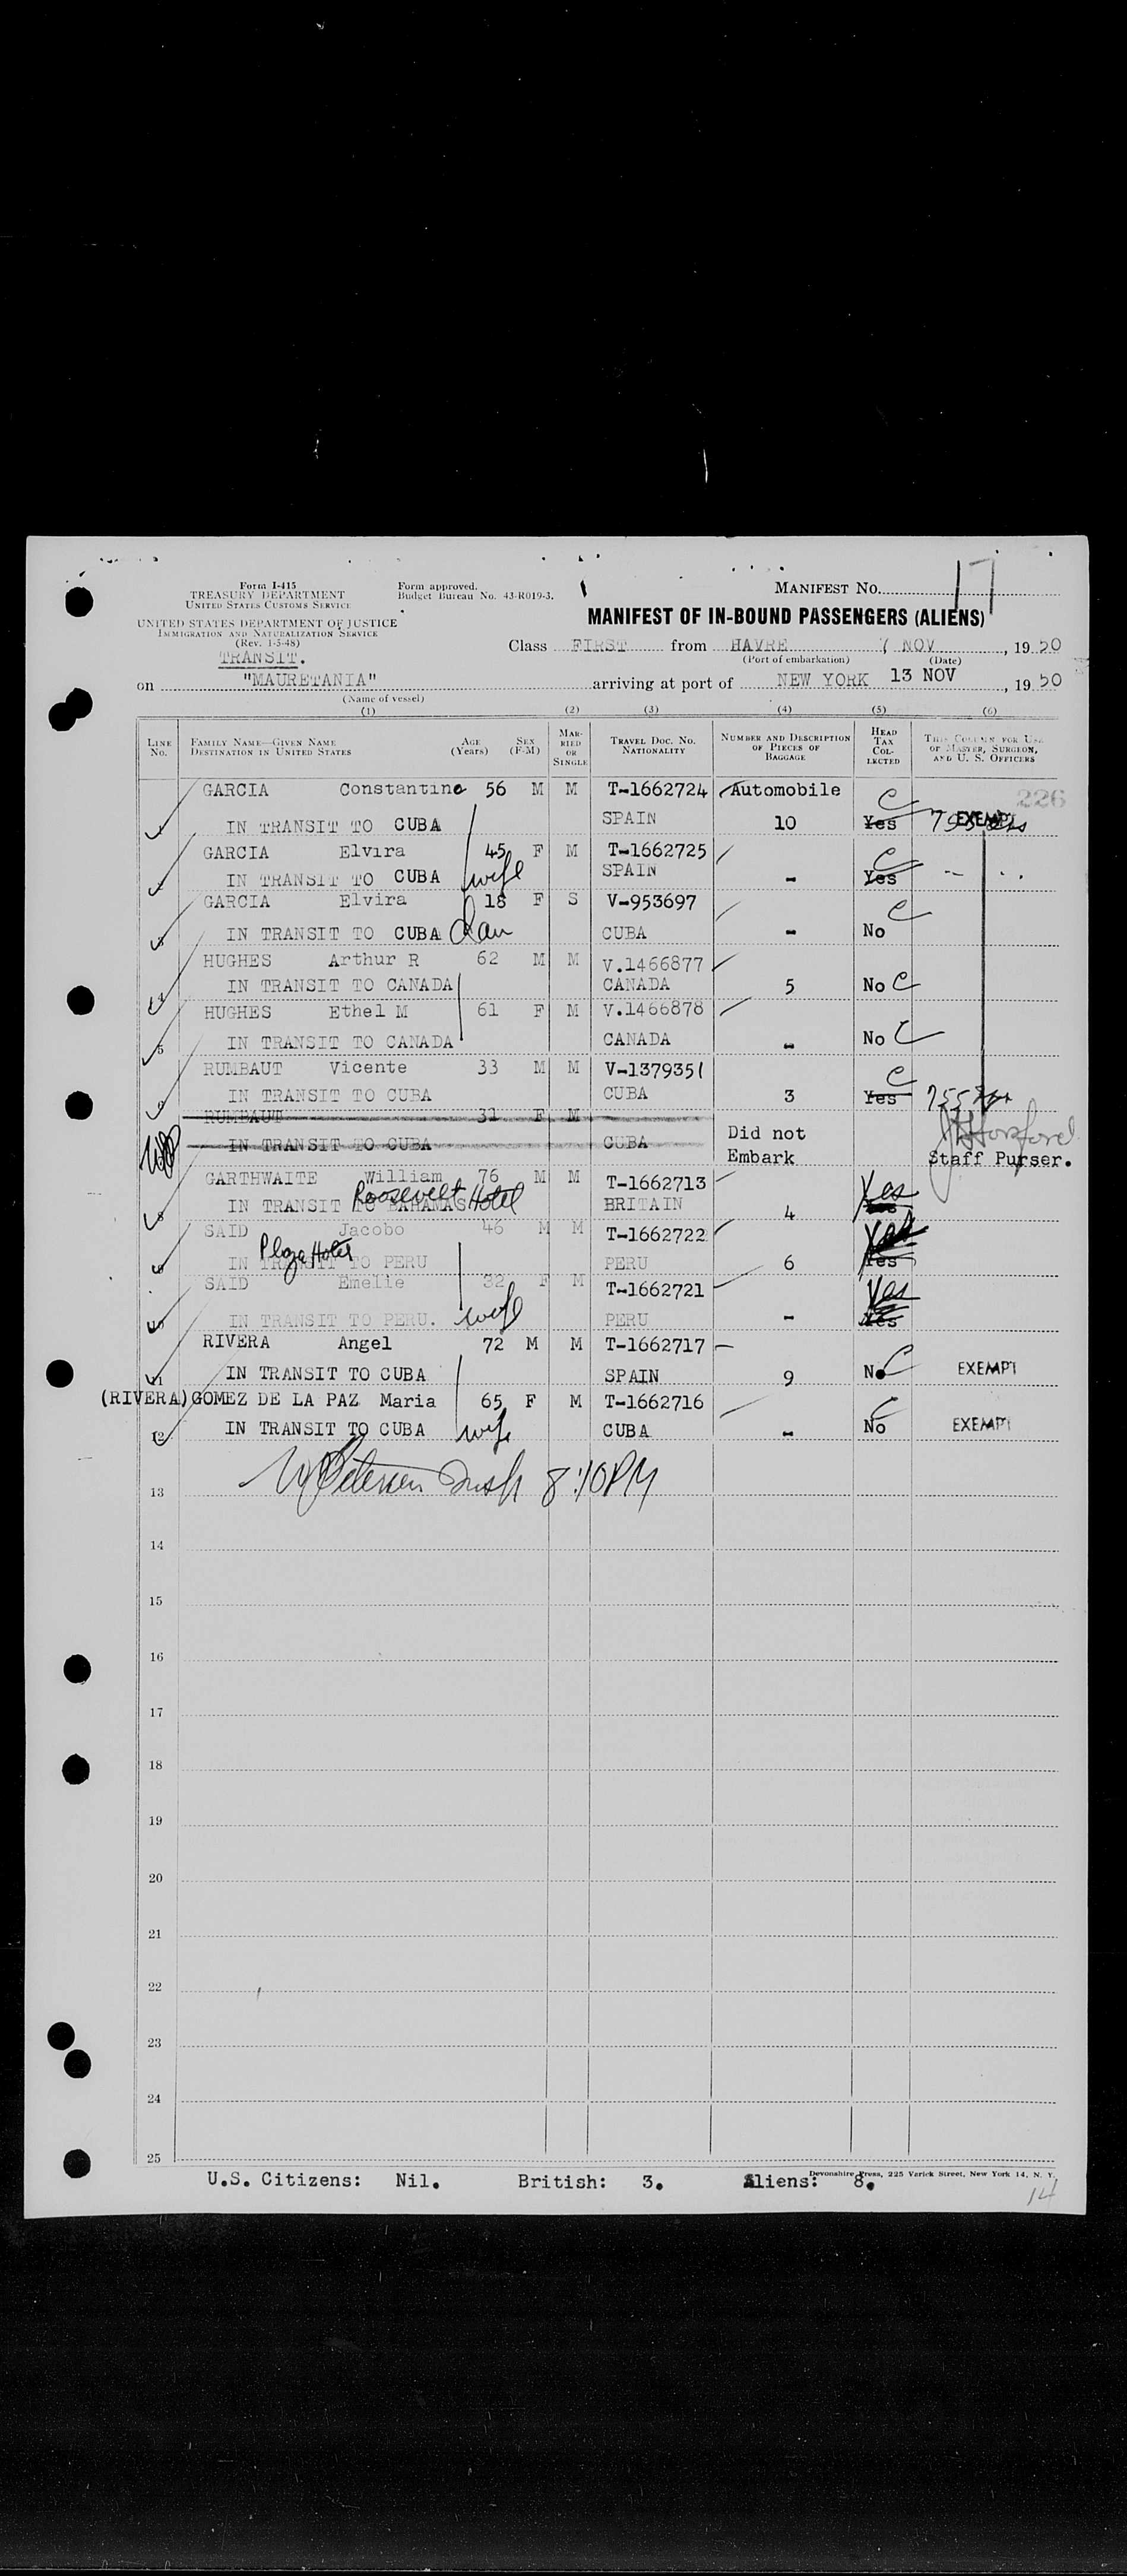 Form I-415
TREASURY DEPARTMENT
UNITED STATES CUSTOMS SERVICE
UNITED STATES DEPARTMENT OF JUSTICE
IMMIGRATION AND NATURALIZATION SERVICE
(Rev. 1-5-48)
TRANSIT.
Form approved.
Budget Bureau No. 43-R019-3.
MANIFEST NO. 17
MANIFEST OF IN-BOUND PASSENGERS (ALIENS)
Class FIRST from HAVRE 7 NOV, 1950
(Port of embarkation) (Date)
on "MAURETANIA" arriving at port of NEW YORK 13 NOV, 1950
(Name of vessel)
(1) (2) (3) (4) (5) (6)
LINE No. FAMILY NAME—GIVEN NAME DESTINATION IN UNITED STATES AGE (Years) SEX (F-M) MARRIED OR SINGLE TRAVEL DOC. NO. NATIONALITY NUMBER AND DESCRIPTION OF PIECES OF BAGGAGE HEAD TAX COLLECTED THIS COLUMN FOR USE OF MASTER, SURGEON, AND U. S. OFFICERS
GARCIA Constantine 56 M M T-1662724 Automobile C 226
IN TRANSIT TO CUBA SPAIN 10 Yes EXEMPT
GARCIA Elvira 45 F M T-1662725 C
IN TRANSIT TO CUBA wife SPAIN - Yes
GARCIA Elvira 18 F S V-953697 C
3 IN TRANSIT TO CUBA dau CUBA - No
HUGHES Arthur R 62 M M V.1466877
4 IN TRANSIT TO CANADA CANADA 5 No C
HUGHES Ethel M 61 F M V.1466878
5 IN TRANSIT TO CANADA CANADA - No C
RUMBAUT Vicente 33 M M V-1379351 C
IN TRANSIT TO CUBA CUBA 3 Yes
RUMBAUT 31 F M Did not
IN TRANSIT TO CUBA CUBA Embark Staff Purser.
GARTHWAITE William 76 M M T-1662713 Yes
8 IN TRANSIT TO BAHAMAS Roosevelt Hotel BRITAIN 4
SAID Jacobo 46 M M T-1662722 Yes
IN TRANSIT TO PERU Plaza Hotel PERU 6 Yes
SAID Emelie 32 F M T-1662721 Yes
10 IN TRANSIT TO PERU. wife PERU - Yes
RIVERA Angel 72 M M T-1662717 -
11 IN TRANSIT TO CUBA SPAIN 9 No C EXEMPT
(RIVERA)GOMEZ DE LA PAZ Maria 65 F M T-1662716 C
12 IN TRANSIT TO CUBA wife CUBA - No EXEMPT
8:10PM
13
14
15
16
17
18
19
20
21
22
23
24
25
U.S. Citizens: Nil. British: 3. Aliens: 8.
Devonshire Press, 225 Varick Street, New York 14, N. Y.
14